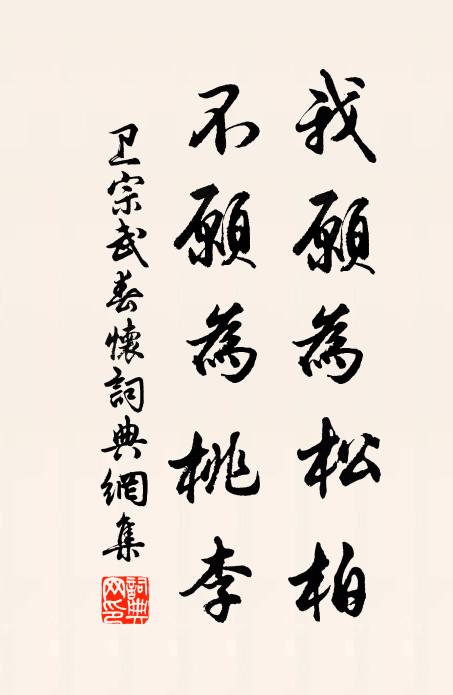 我願為松柏
不願為桃李
卫宗武春懷詞典網集
詞典网印